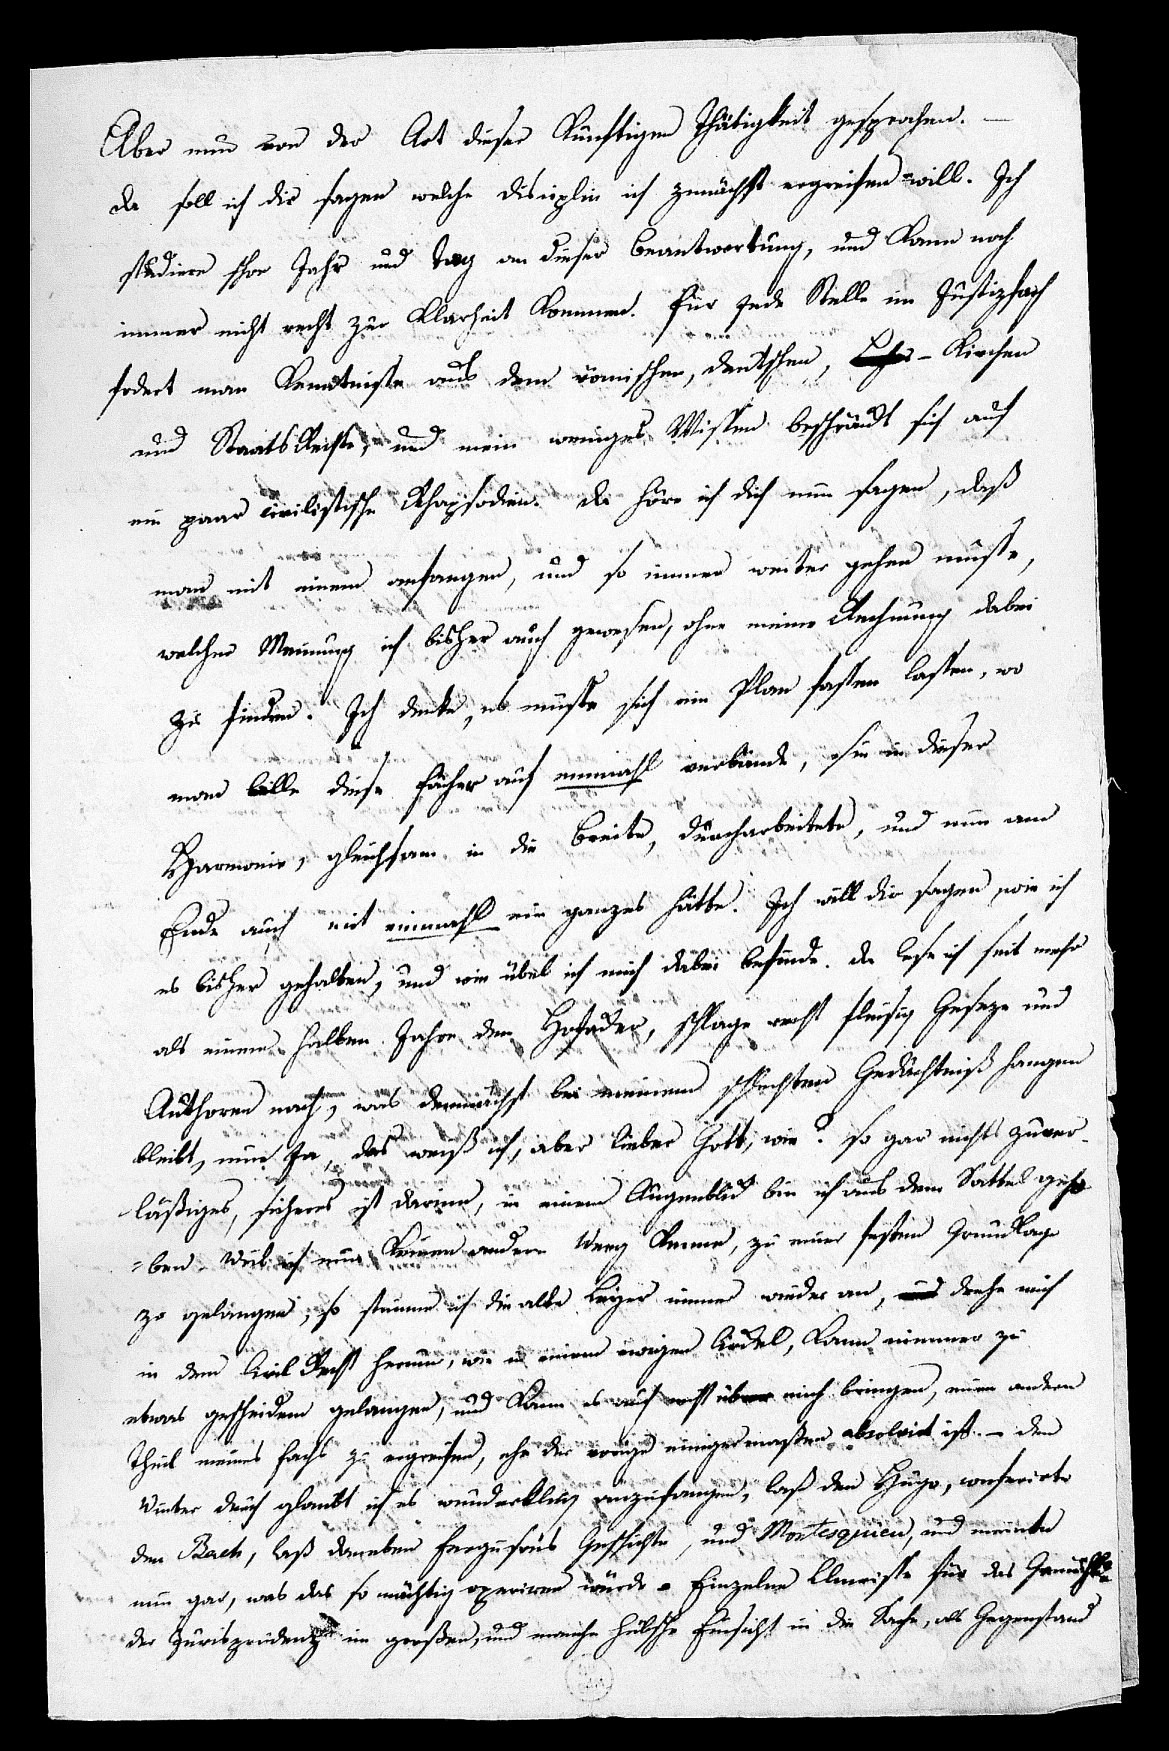 Aber nun von der Art dieser künftigen Thätigkeit gesprochen. —
da soll ich dir sagen welche disciplin ich zunächst ergreifen will. Ich
studiere schon Jahr und Tag an dieser Beantwortung, und kann noch
immer nicht recht zur Klarheit kommen. Für jede Stelle im Justizfach
fodert man Kenntniße aus dem römischen, deutschen, Kirchen
und StaatsRechte, und mein weniges Wißen beschränkt sich auf
ein paar civilistische Rhapsodien. da höre ich dich nun sagen, daß
man mit einem anfangen, und so immer weiter gehen müßte,
welcher Meinung ich bisher auch gewesen, ohne meine Rechnung dabei
zu finden. Ich denke, es müßte sich ein Plan faßen laßen, wo
man alle diese Fächer auf einmahl verbände, sie in dieser
Harmonie, gleichsam in die Breite, durcharbeitete, und nun am
Ende auch mit einmahl ein ganzes hätte. Ich will dir sagen, wie ich
es bisher gehalten, und wie übel ich mich dabei befinde. da lese ich seit mehr
als einem halben Jahre den Hofacker, schlage recht fleisig Geseze und
Authoren nach, was demnächst bei meinem schlechten Gedächtniß hangen
bleibt, nun Ja, das weiß ich, aber lieber Gott, wie? so gar nichts zuver-
läßiges, sicheres ist darinn, in einem Augenblick bin ich aus dem Sattel geho
=ben. Weil ich nun keinen andern Weeg kenne, zu einer festen Grundlage
zu gelangen, so stimme ich die alte Leyer immer wieder an, drehe mich
in dem Civil Recht herum, wie in einem ewigen Cirkel, kann nimmer zu
etwas gescheidem gelangen, und kann es auch nicht über mich bringen, einen andern
Theil meines Fachs zu ergreifen, ehe der vorige einigermaßen absolvirt ist. — den
Winter durch glaubt ich es wunderklug anzufangen, laß den Hugo, conferirte
den Bach, laß daneben Fergusons Geschichte, und Montesquieu, und meinte
nun gar, was das so mächtig operiren würde. Einzelne Umriße für das
der Jurisprudenz im großen, und manche hübsche Einsicht in die Sache, als Gegenstand